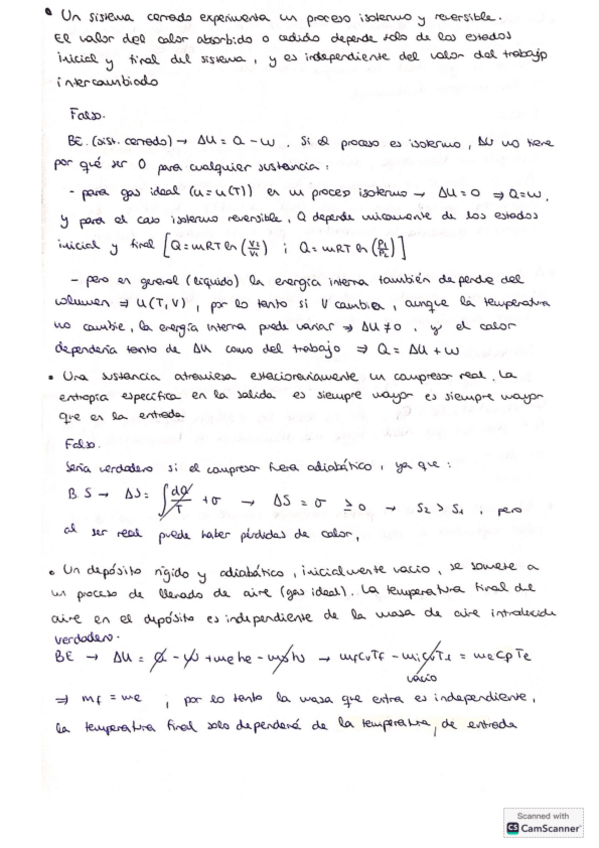 • Un sistema cerrado experimenta un proceso isotermo y reversible.
El valor del calor absorbido o cedido depende solo de los estados
inicial y final del sistema, y es independiente del valor del trabajo
intercambiado
Falso.
BE. (sist. cerrado) → ΔU = Q - W . Si el proceso es isotermo, ΔU no tiene
por qué ser 0 para cualquier sustancia:
- para gas ideal (u=u(T)) en un proceso isotermo → ΔU=0 ⇒ Q=W,
y para el caso isotermo reversible, Q depende unicamente de los estados
inicial y final [Q=mRT ln (V2/V1) ; Q=mRT ln (P1/P2)]
- pero en general (líquido) la energía interna también depende del
volumen ⇒ U(T,V), por lo tanto si V cambia, aunque la temperatura
no cambie, la energía interna puede variar ⇒ ΔU≠0. y el calor
dependería tanto de ΔU como del trabajo ⇒ Q = ΔU + W
• Una sustancia atraviesa estacionariamente un compresor real. La
entropía específica en la salida es siempre mayor es siempre mayor
que en la entrada
Falso.
Sería verdadero si el compresor fuera adiabático, ya que:
B.S → ΔS = ∫ dQ/T + σ → ΔS = σ ≥ 0 → S2 > S1 , pero
al ser real puede haber pérdidas de calor,
• Un depósito rígido y adiabático, inicialmente vacío, se somete a
un proceso de llenado de aire (gas ideal). La temperatura final del
aire en el depósito es independiente de la masa de aire introducida
verdadero.
BE → ΔU = Q - W + me he - ms hs → mf Cv Tf - mi Cv Ti = me Cp Te
vacío
⇒ mf = me ; por lo tanto la masa que entra es independiente,
la temperatura final solo dependerá de la temperatura, de entrada
Scanned with
CS CamScanner